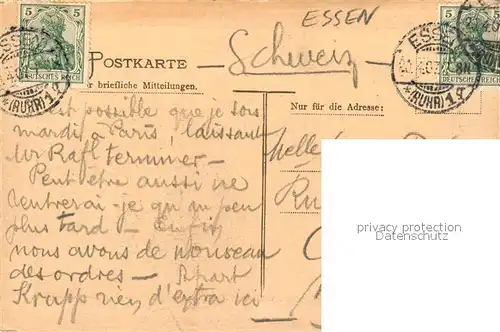 ESSEN
5 5
ESSEN
DEUTSCHES REICH
*(RUHR)1g
5
ESSEN
20.4.07
DEUTSCHES REICH
*(RUHR)1g
POSTKARTE
Schweiz
er briefliche Mitteilungen.
Nur für die Adresse:
est possible que je sois
mardi à Paris, laissant
Mr Rafl terminer –
Peut être aussi ne
rentrerai-je qu'un peu
plus tard – Enfin,
nous avons de nouveau
des ordres – Apart
Krupp rien d'extra ici
Melle
privacy protection
Datenschutz